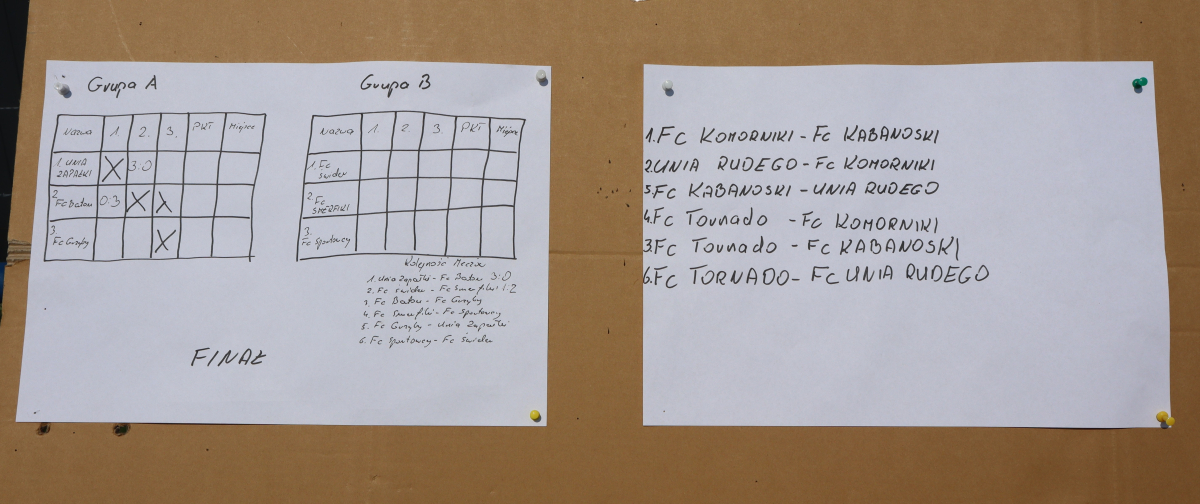 Grupa A
Nazwa 1. 2. 3. PKT Miejsce
1. UNIA X 3:0
ZAPAŁKI
2. Fc Baton 0:3 X X
3. Fc Grzyby X
Grupa B
Nazwa 1. 2. 3. PKT Miejsce
1. Fc
świder
2. Fc
SMERFIKI
3.
Fc Sportowcy
Kolejność Meczów
1. Unia Zapałki - Fc Baton 3:0
2. Fc świder - Fc Smerfiki 1:2
3. Fc Baton - Fc Grzyby
4. Fc Smerfiki - Fc Sportowcy
5. Fc Grzyby - Unia Zapałki
6. Fc Sportowcy - Fc świder
FINAŁ
1.FC KOMORNIKI - FC KABANOSKI
2.UNIA RUDEGO - FC KOMORNIKI
5.FC KABANOSKI - UNIA RUDEGO
4.FC Tornado - FC KOMORNIKI
3.FC Tornado - FC KABANOSKI
6.FC TORNADO - FC UNIA RUDEGO